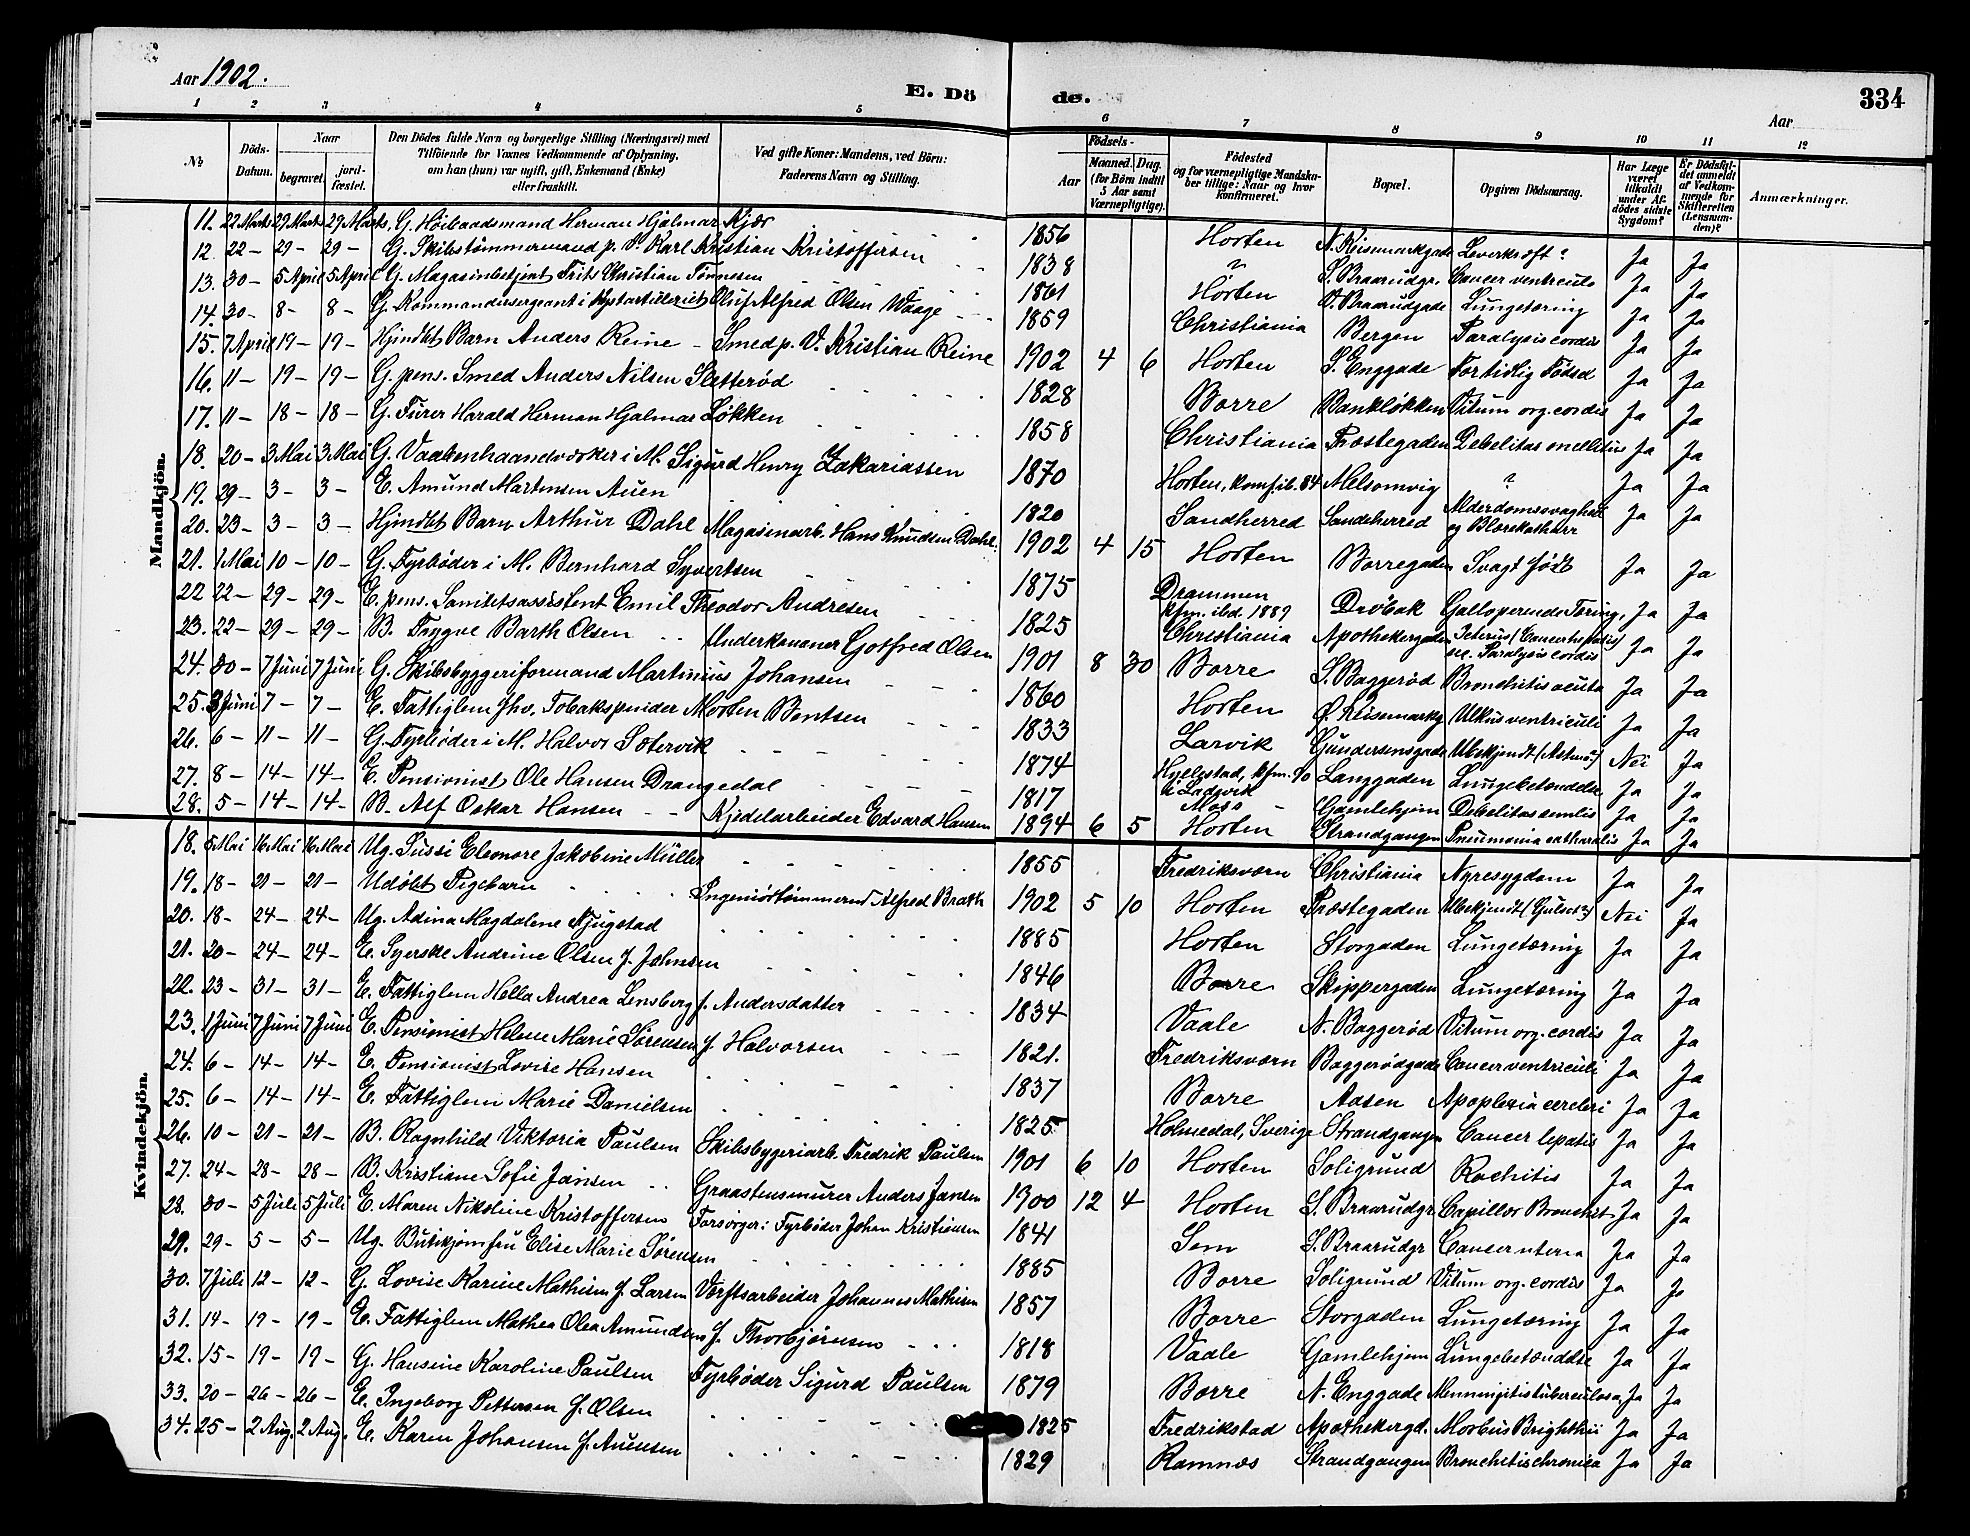 Aar 1902.
E. Dö
de.
334
Aar
1 2 3 4 5 6 7 8 9 10 11 12
No
Döds-Datum.
Naar
begravet.
jord-fæstet.
Den Dödes fulde Navn og borgerlige Stilling (Næringsvei) med Tilföiende for Voxnes Vedkommende af Oplysning, om han (hun) var ugift, gift, Enkemand (Enke) eller fraskilt.
Ved gifte Koner: Mandens, ved Börn: Faderens Navn og Stilling.
Födsels-
Aar
Maaned. Dag. (for Börn indtil 5 Aar samt Værnepligtige).
Födested og for værnepligtige Mandskaber tillige: Naar og hvor konfirmeret.
Bopæl.
Opgiven Dödsaarsag.
Har Læge været tilkaldt under Afdödes sidste Sygdom?
Er Dödsfaldet anmeldt af Vedkommende for Skifteretten (Lensmanden)?
Anmærkninger.
Mandkjön.
11. 22 Marts 29 Marts 29 Marts. G. Höibaadsmand Herman Hjalmar Kjær 1856 Horten N. Keisemarkgade Leverkræft? Ja Ja
12. 22 - 29 - 29 - G. Skibstømmermand p. V. Karl Kristian Kristoffersen 1838 ? S. Braarudgr. Cancer ventriculi Ja Ja
13. 30 - 5 April 5 April G. Magasinbetjent Frits Christian Tønnesen 1861 Horten V. Braarudgade Lungetæring Ja Ja
14. 30 - 8 - 8 - G. Kommandersergeant i Kystartilleriet Oluf Alfred Olsen Waage 1859 Christiania Bergen Paralysis cordis Ja Ja
15. 7 April 19 - 19 - Hjmdbt Barn Anders Reine - Smed p. V. Kristian Reine 1902 4 6 Horten S. Enggade For tidlig Födsel Ja Ja
16. 11 - 19 - 19 - G. pens. Smed Anders Nilsen Sletterød 1828 Borre Bankløkken Vitum org. cordis Ja Ja
17. 11 - 18 - 18 - G. Furer Harald Herman Hjalmar Løkken 1858 Christiania Præstegaden Debelitas mellitus Ja Ja
18. 20 - 3 Mai 3 Mai G. Vaabenhaandværker i M. Sigurd Henry Zakariassen 1870 Horten, konf. ib. 84 Melsomvig ? Ja Ja
19. 29 - 3 - 3 - E. Amund Martinsen Auen 1820 Sandherred Sandeherred Alderdomssvaghed og Blærekatharr Ja Ja
20. 23 - 3 - 3 - Hjmdbt Barn Arthur Dahl Magasinarb. Hans Knudsen Dahl. 1902 4 15 Horten Borregaden Svagt födt Ja Ja
21. 1 Mai 10 - 10 - G. Fyrbøder i M. Bernhard Syvertsen 1875 Drammen kfm. ibd. 1889 Drøbak Galloperende Tæring, Ja Ja
22 22 - 29 - 29 - E. pens. Sanitetsassistent Emil Theodor Andresen 1825 Christiania Apothekergaden Icterus (Cancer hepatis) sec. Paralysis cordis Ja Ja
23. 22 - 29 - 29 - B. Trygve Barth Olsen Underkanoner Gotfred Olsen 1901 8 30 Borre S. Baggerød Bronchitis acuta Ja Ja
24. 30 - 7 Juni 7 Juni G. Skibsbyggeriformand Martinius Johansen 1860 Horten Ø. Keisemarkg Ulkus ventriculi Ja Ja
25. 3 Juni 7 - 7 - E. Fattiglem fhv. Tobakspinder Morten Bentsen 1833 Larvik Gundersensgade Ubekjendt (Astma?) Nei Ja
26. 6 - 11 - 11 - G. Fyrbøder i M. Halvor Sætervik 1874 Hyllestad, kfm. 90 i Ladvik Langgaden Lungebetændelse Ja Ja
27. 8 - 14 - 14 - E. Pensionist Ole Hansen Drangedal 1817 Moss Gamlehjem Debelitas senilis Ja Ja
28. 5 - 14 - 14 - B. Alf Oskar Hansen Kjedelarbeider Edvard Hansen 1894 6 5 Horten Strandgangen Pneumonia catharalis Ja Ja
Kvindekjön.
18. 5 Mai 16 Mai 16 Mai Ug. Sussi Eleonore Jakobine Müller 1855 Fredriksværn Christiania Nyresygdom Ja Ja
19. 18 - 21 - 21 - Udöbt Pigebarn Ingeniörtømmermd Alfred Brath 1902 5 10 Horten Præstegaden Ubekjendt (Gulsot?) Nei Ja
20. 18 - 24 - 24 - Ug. Adina Magdalene Fjugstad 1885 Horten Storgaden Lungetæring Ja Ja
21. 20 - 24 - 24 - E. Syerske Andrine Olsen f. Johnsen 1846 Borre Skippergaden Lungetæring Ja Ja
22. 23 - 31 - 31 - E. Fattiglem Hella Andrea Lensberg f. Andersdatter 1834 Vaale N. Baggerød Vitum org. cordis Ja Ja
23. 1 Juni 7 Juni 7 Juni E. Pensionist Helene Marie Sørensen f. Halvorsen 1821. Fredriksværn Baggerødgade Cancer ventriculi Ja Ja
24. 6 - 14 - 14 - E. Pensionist Lovise Hansen 1837 Borre Aasen Apoplexia cerebri Ja Ja
25. 6 - 14 - 14 - E. Fattiglem Marie Danielsen 1825 Holmedal, Sverige Strandgangen Cancer hepatis Ja Ja
26. 10 - 21 - 21 - B. Ragnhild Viktoria Paulsen Skibsbygeriarb. Fredrik Paulsen 1901 6 10 Horten Soligrund Rachitis Ja Ja
27. 24 - 28 - 28 - B. Kristiane Sofie Jansen Graastensmurer Anders Jansen 1900 12 4 Horten S. Braarudgr Capillær Bronchit Ja Ja
28. 30 - 5 Juli 5 Juli E. Maren Nikoline Kristoffersen Forsörger: Fyrbøder Johan Kristiansen 1841 Sem S. Braarudgr Cancer uteria Ja Ja
29. 29 - 5 - 5 - Ug. Butikjomfru Elise Marie Sørensen 1885 Borre Soligrund Vitum org. cordis Ja Ja
30. 7 Juli 12 - 12 - G. Lovise Karine Mathisen f. Larsen Værftsarbeider Johannes Mathisen 1857 Borre Storgaden Lungetæring Ja Ja
31. 14 - 19 - 19 - E. Fattiglem Mathea Olea Amundsen f. Thorbjørnsen 1818 Vaale Gamlehjem Lungebetændelse Ja Ja
32. 15 - 19 - 19 - G. Hansine Karoline Paulsen Fyrbøder Sigurd Paulsen 1879 Borre N. Enggade Menningitis tuberculosa, Ja Ja
33. 20 - 26 - 26 - E. Ingeborg Pettersen f. Olsen 1825 Fredrikstad Apothekergd. Morbus Brighthii Ja Ja
34. 25 - 2 Aug. 2 Aug. E. Karen Johansen f. Auensen 1829 Ramnæs Strandgangen Bronchitis chronica Ja Ja